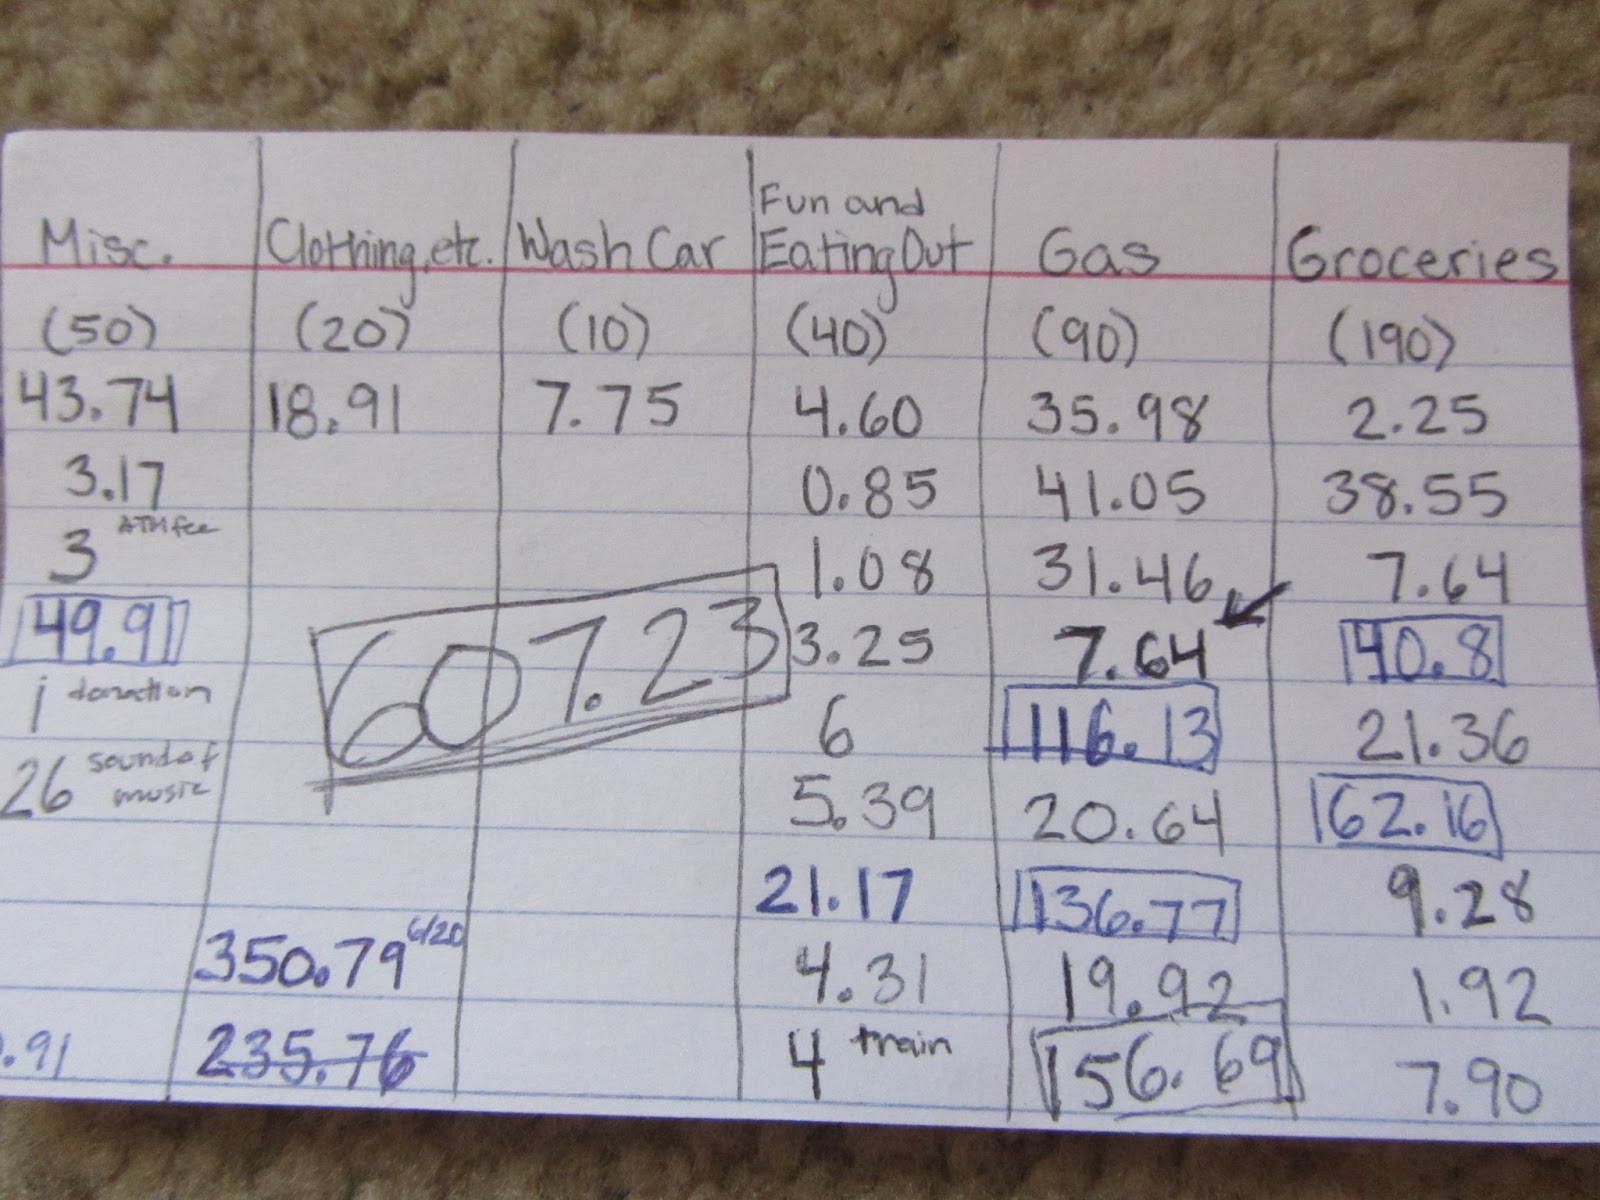 Misc. Clothing, etc. Wash Car Fun and Eating Out Gas Groceries
(50) (20) (10) (40) (90) (190)
43.74 18.91 7.75 4.60 35.98 2.25
3.17 0.85 41.05 38.55
3 ATM fee 1.08 31.46 7.64
49.91 607.23 3.25 7.64 40.8
1 donation 6 116.13 21.36
26 sound of music 5.39 20.64 162.16
21.17 136.77 9.28
350.79 6/20 4.31 19.92 1.92
.91 235.76 4 train 156.69 7.90